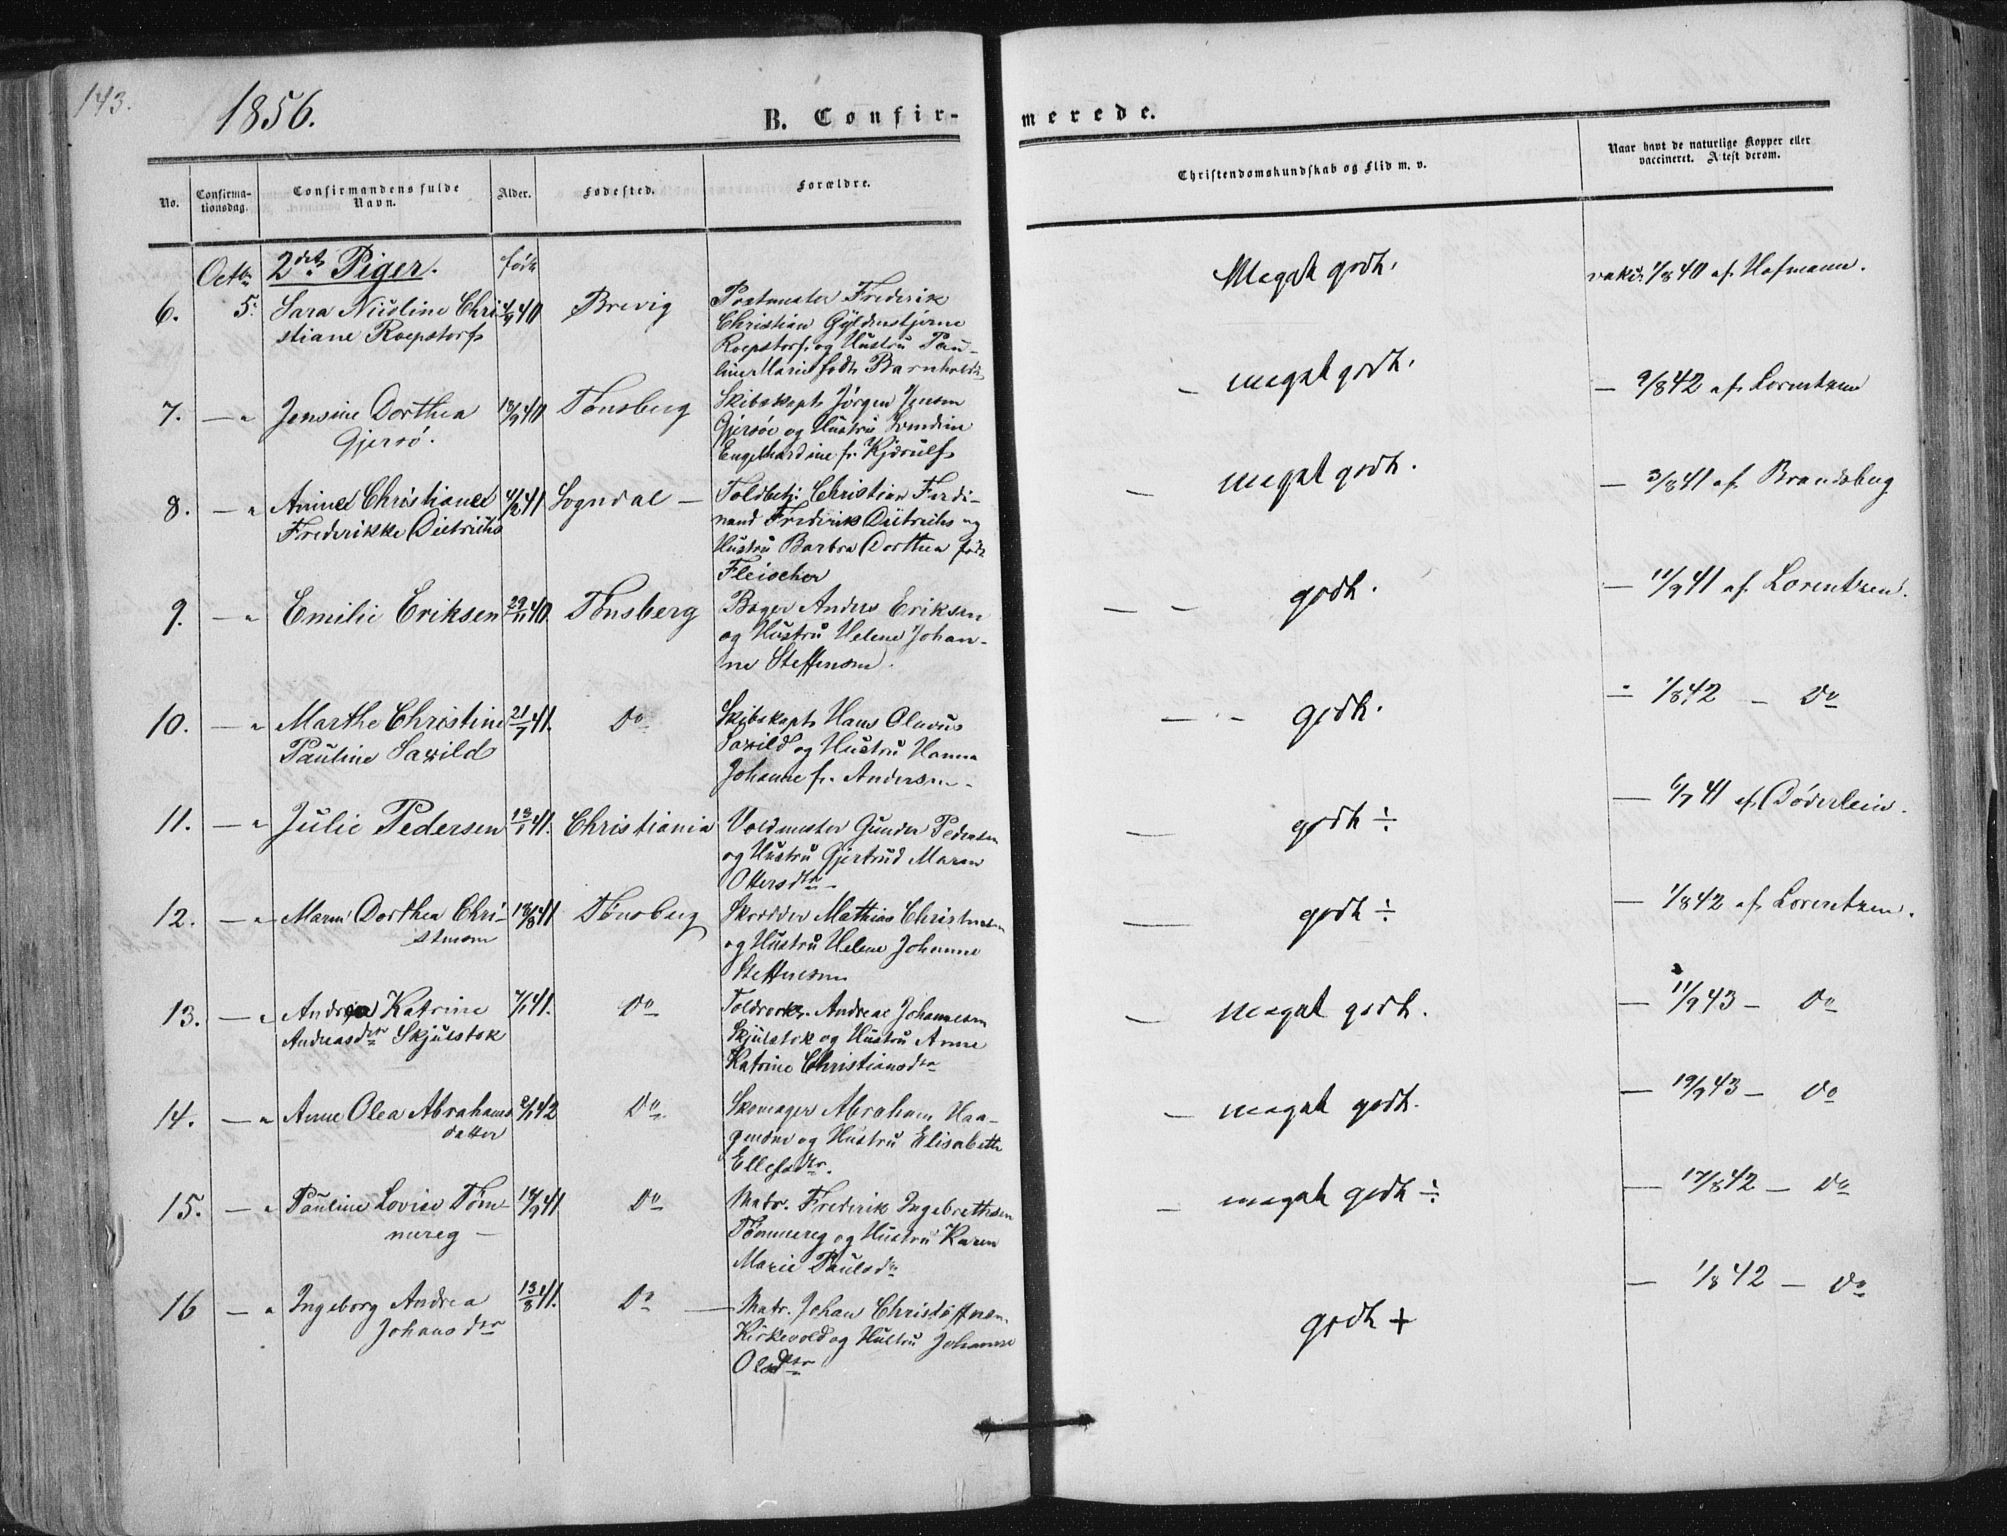 143.
1856.
B. Confir-
merede.
No.
Confirma-
tionsdag.
Confirmandens fulde
Navn.
Alder.
Fødested.
Forældre.
Christendomskundskab og Flid m. v.
Naar havt de naturlige Kopper eller
vaccineret. Attest derom.
Octbr 2det Piger. født
6. 5. Sara Nicoline Chri 4/9 40 Brevig Postmester Frederik Meget godt. vakc. 1/8 40 af Hofmann.
stiane Roepstorf Christian Gyldenstjerne
Roepstorf og Hustru Pau-
line Marie født Barnholdt
7. — " Jensine Dorthea 18/9 40 Tønsberg Skibskapt Jørgen Jensen — meget godt. — 9/8 42 af Lorentzen
Gjersö. Gjersöe og Hustru
Engelhardine f.
8. — " Anne Christiane 4/2 41 Sogndal — Toldbetj. Christian Ferdi- — meget godt. — 3/8 41 af Brandsberg
Frederikke Dietrichs nand Frederik Dietrichs og
Hustru Barbra Dorthea født
Fleischer
9. — " Emilie Eriksen 29/11 40. Tønsberg Bager Anders Eriksen — — godt. — 11/9 41 af Lorentzen.
og Hustru Helene Johan-
ne Steffensen.
10. — " Marthe Christine 21/1 41. Do Skibskapt Hans Olavus — - godt. — 1/8 42 — Do
Pauline Saxild Saxild og Hustru Hanna
Johanne f. Andersen.
11. — " Julie Pedersen 13/1 41. Christiania Voldmester Gunder Pedersen — godt ÷ — 6/7 41 af Døderlein.
og Hustru Gjertrud Maren
Ottersdtr
12. — " Maren Dorthea Chri- 18/8 41. Tønsberg Skrædder Mathias Christensen — godt ÷ — 1/8 42 af Lorentzen.
stensen og Hustru Helene Johanne
Steffensen
13. — " Andrea Katrine 7/1 41. Do Andreas Johannesen — meget godt. — 11/9 43 — Do
Andreasdtr Skjulstok Skjulstok og Hustru Anne
Katrine Christiansdtr
14. — " Anne Olea Abrahams 2/1 42 Do Skomager Abraham Haa- — meget godt. — 19/9 43 — Do
datter gensen og Hustru Elisabeth
Ellefsdtr.
15. — " Pauline Lovise Tøm- 18/9 41 Do Matr. Frederik Ingebrethsen — meget godt ÷ — 17/8 42 — Do
mereg — Tømmereg og Hustru Karen
Marie Paulsdr
16 — " Ingeborg Andrea 13/8 41. Do — Matr. Johan Christoffersen godt + — 1/8 42 — Do
Johansdtr Kirkevold og Hustru Johanne
Olsdtr